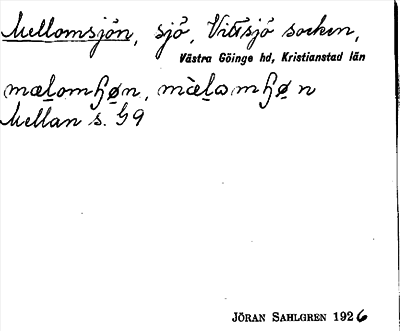 Mellomsjön, sjö, Vittsjö socken,
Västra Göinge hd, Kristianstad län
Mellan s. G 9
JÖRAN SAHLGREN 1926